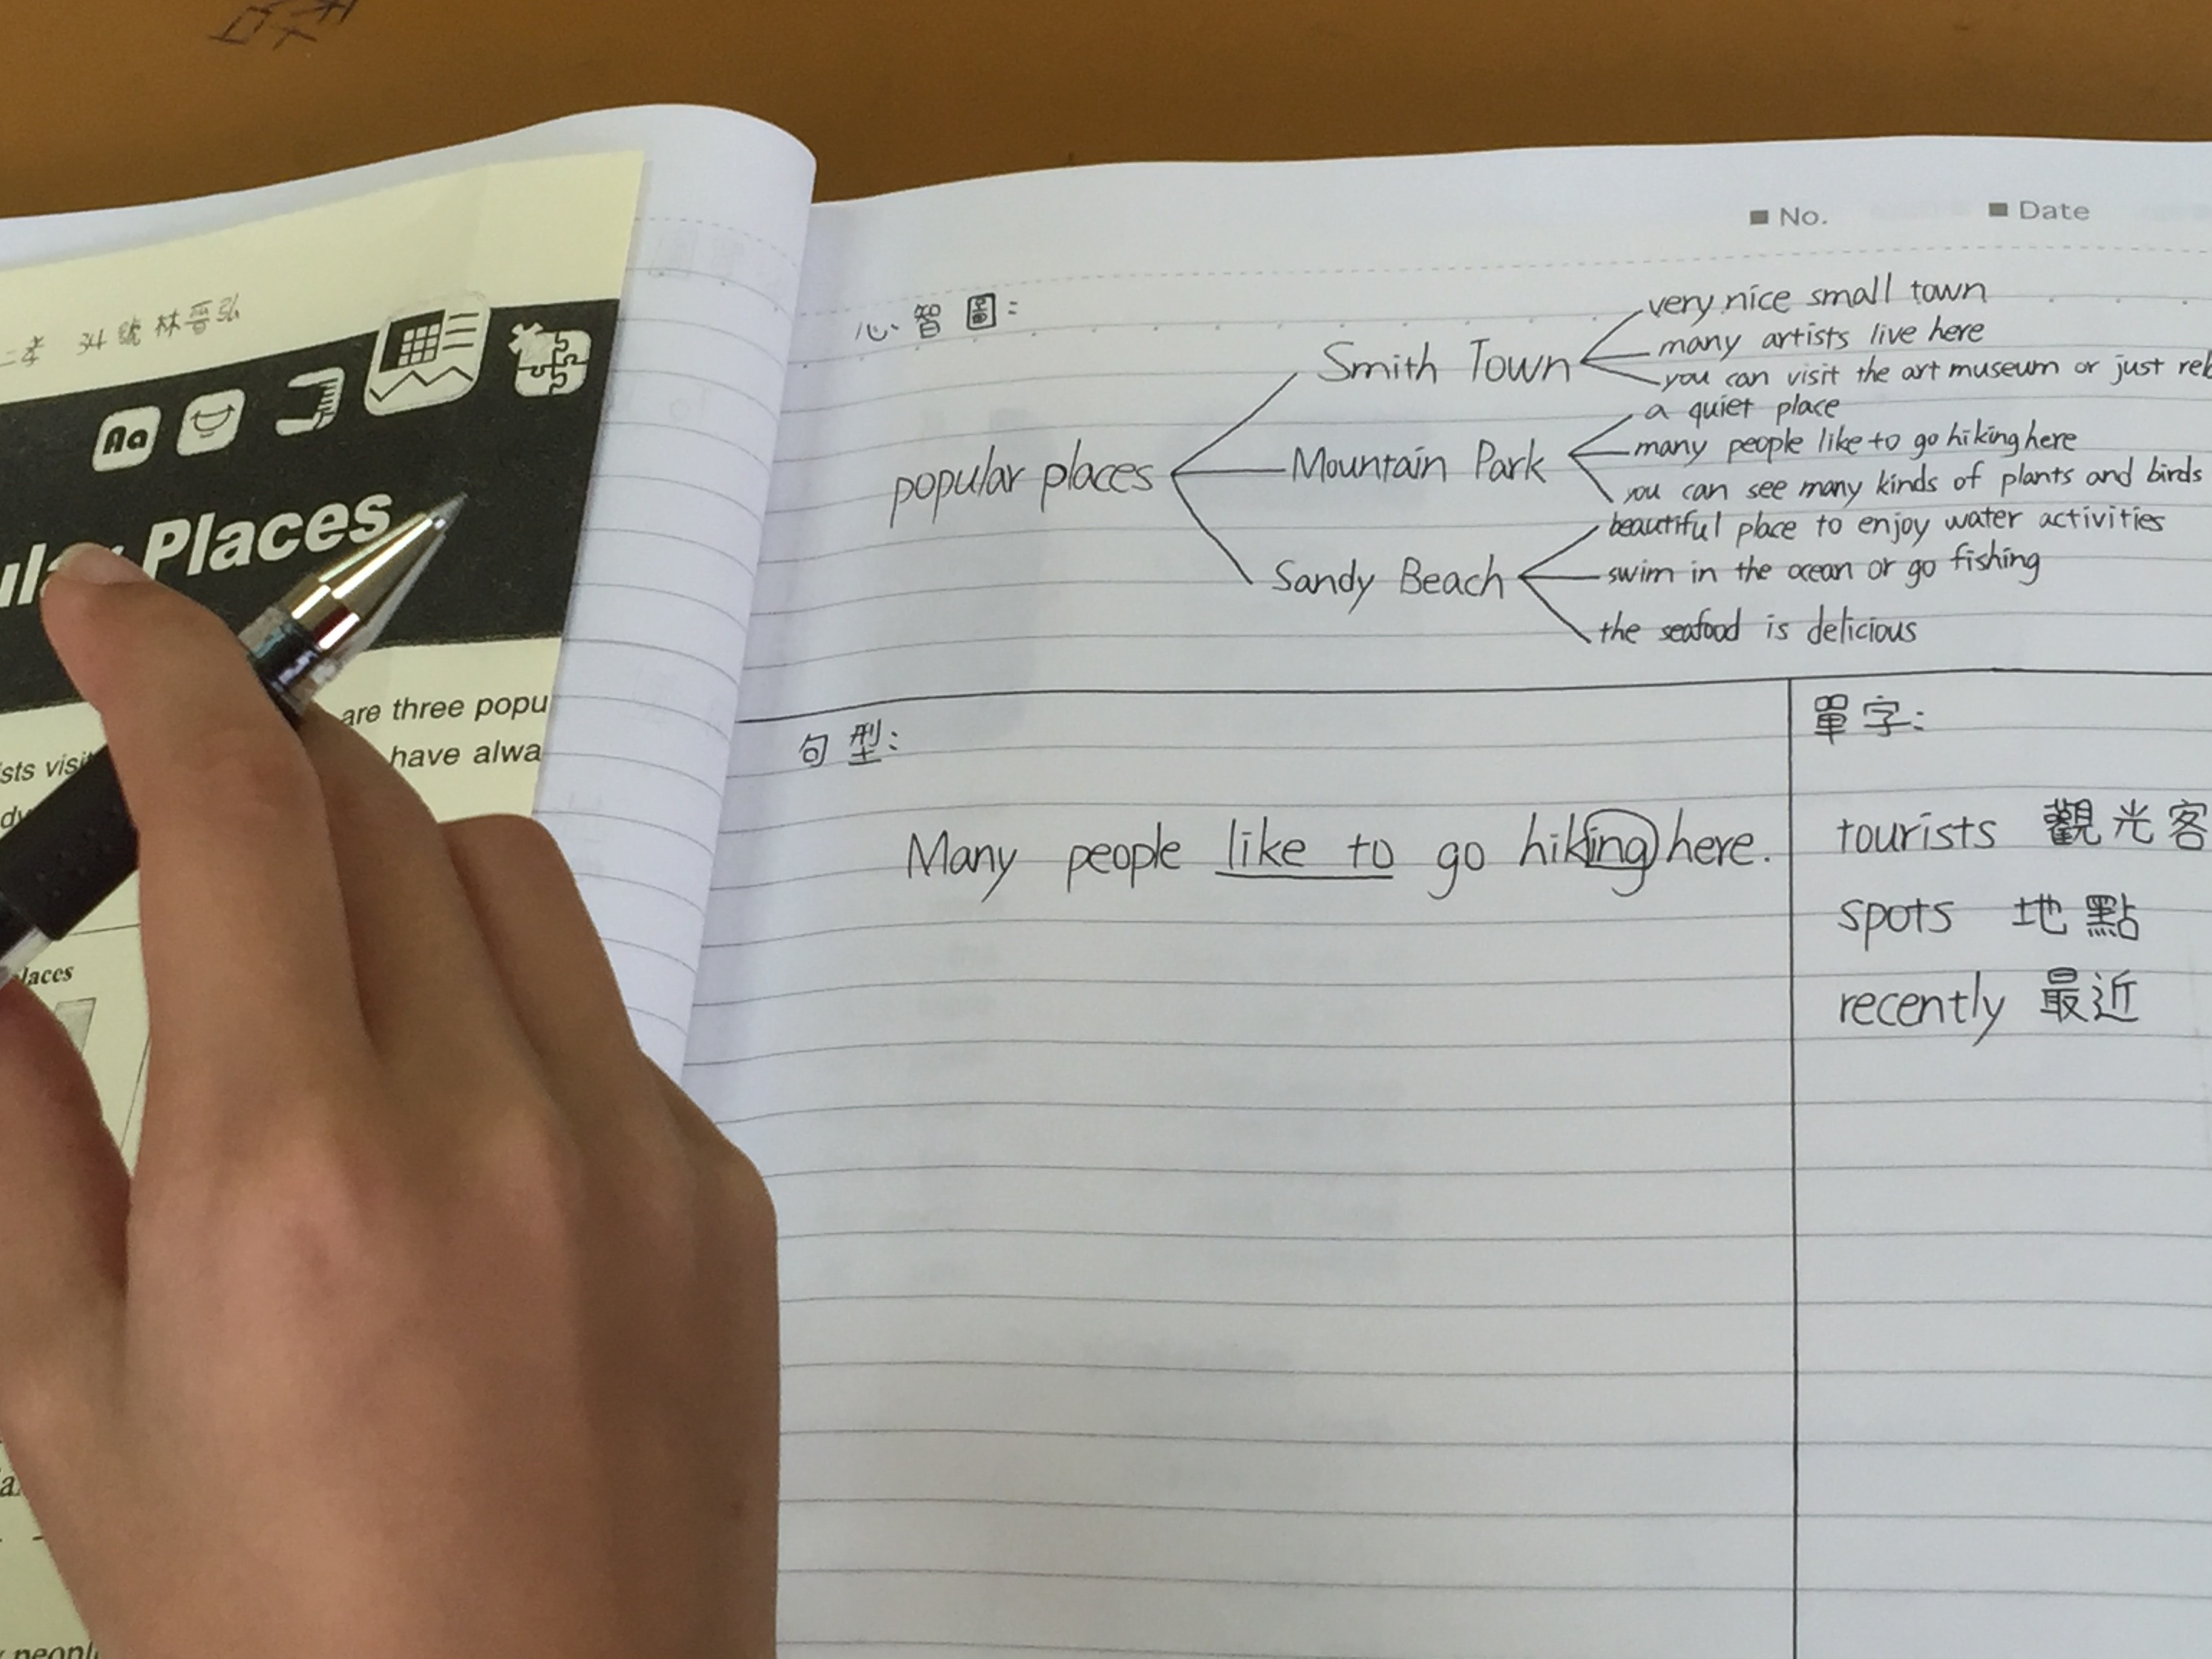 二孝 34號 林晉弘
Aa
Places
are three popu
sts visit have alwa
laces
peopl
No. Date
心智圖:
popular places
Smith Town
very nice small town
many artists live here
you can visit the art museum or just
Mountain Park
a quiet place
many people like to go hiking here
you can see many kinds of plants and birds
Sandy Beach
beautiful place to enjoy water activities
swim in the ocean or go fishing
the seafood is delicious
句型:
Many people like to go hiking here.
單字:
tourists 觀光客
spots 地點
recently 最近